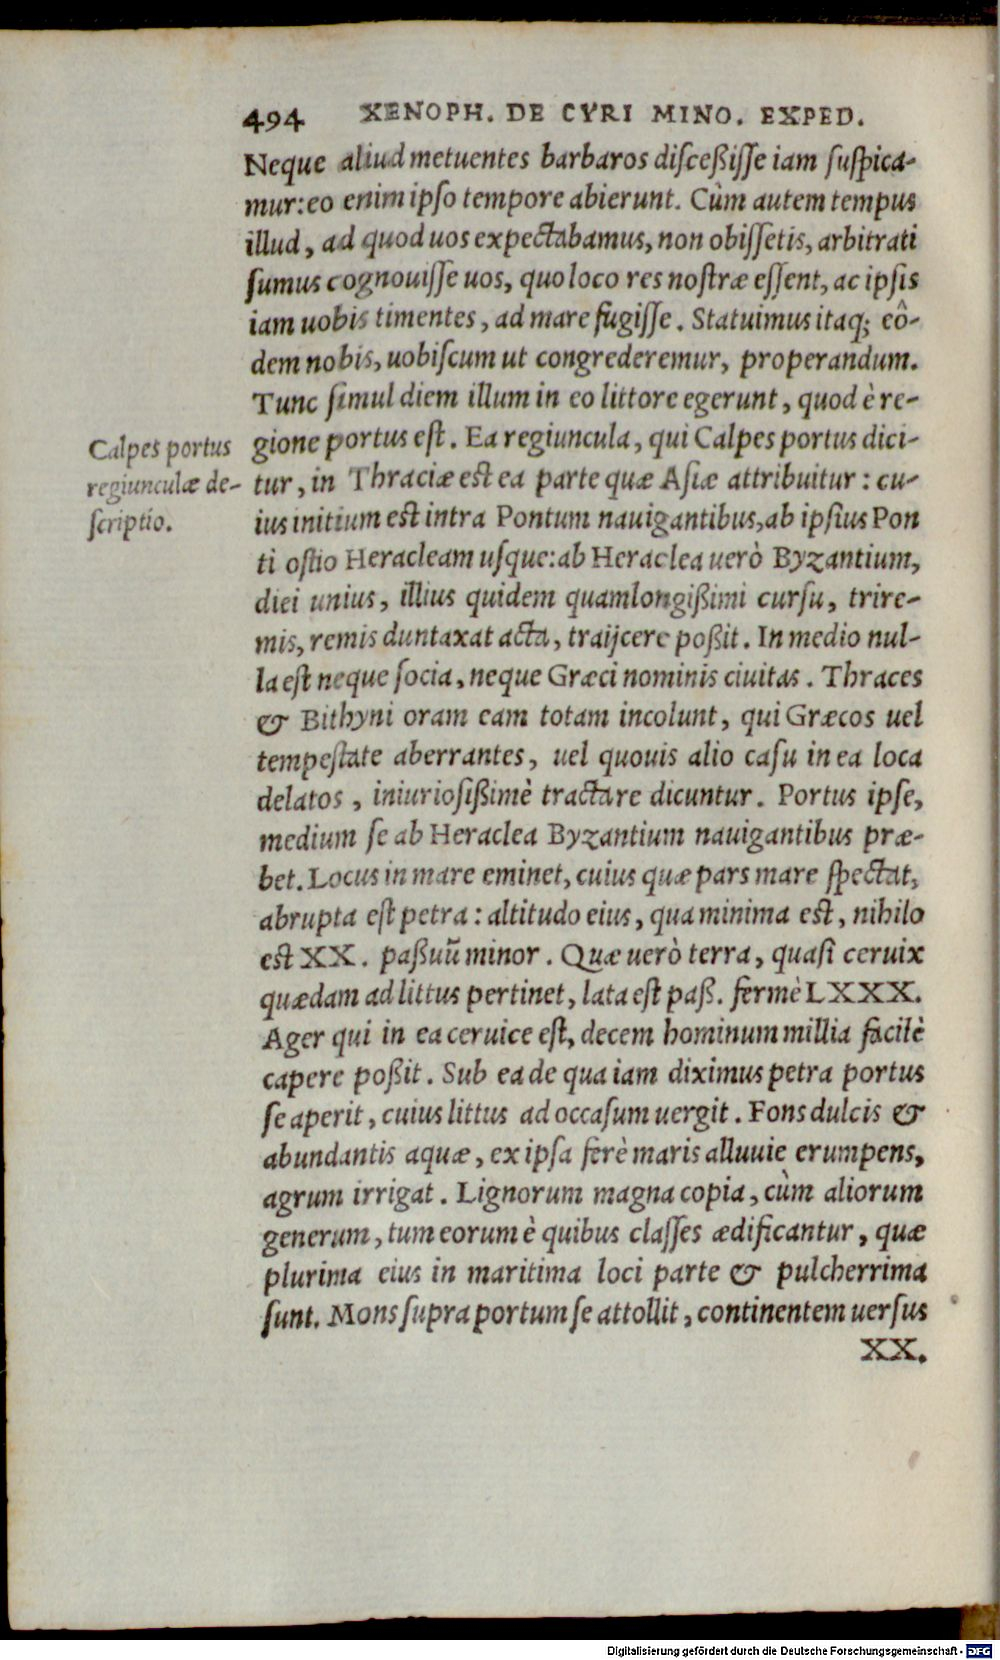 494 XENOPH. DE CYRI MINO. EXPED.
Neque aliud metuentes barbaros diſceßiſſe iam ſuſpica-
mur: eo enim ipſo tempore abierunt. Cùm autem tempus
illud, ad quod uos expectabamus, non obiſſetis, arbitrati
ſumus cognouiſſe uos, quo loco res noſtræ eſſent, ac ipſis
iam uobis timentes, ad mare fugiſſe. Statuimus itaq; eô-
dem nobis, uobiſcum ut congrederemur, properandum.
Tunc ſimul diem illum in eo littore egerunt, quod è re-
gione portus eſt. Ea regiuncula, qui Calpes portus dici-
tur, in Thraciæ est ea parte quæ Aſiæ attribuitur: cu-
ius initium est intra Pontum nauigantibus, ab ipſius Pon
ti oſtio Heracleam uſque: ab Heraclea uerò Byzantium,
diei unius, illius quidem quamlongißimi curſu, trire-
mis, remis duntaxat acta, traijcere poßit. In medio nul-
la eſt neque ſocia, neque Græci nominis ciuitas. Thraces
& Bithyni oram eam totam incolunt, qui Græcos uel
tempeſtate aberrantes, uel quouis alio caſu in ea loca
delatos, iniurioſißimè tractare dicuntur. Portus ipſe,
medium ſe ab Heraclea Byzantium nauigantibus præ-
bet. Locus in mare eminet, cuius quæ pars mare ſpectat,
abrupta eſt petra: altitudo eius, qua minima est, nihilo
est XX. paßuũ minor. Quæ uerò terra, quaſi ceruix
quædam ad littus pertinet, lata eſt paß. fermè LXXX.
Ager qui in ea ceruice eſt, decem hominum millia facilè
capere poßit. Sub ea de qua iam diximus petra portus
ſe aperit, cuius littus ad occaſum uergit. Fons dulcis &
abundantis aquæ, ex ipſa ferè maris alluuie erumpens,
agrum irrigat. Lignorum magna copia, cùm aliorum
generum, tum eorum è quibus claſſes ædificantur, quæ
plurima eius in maritima loci parte & pulcherrima
ſunt. Mons ſupra portum ſe attollit, continentem uerſus
XX.
Calpes portus
regiunculæ de-
ſcriptio.
Digitalisierung gefördert durch die Deutsche Forschungsgemeinschaft - DFG